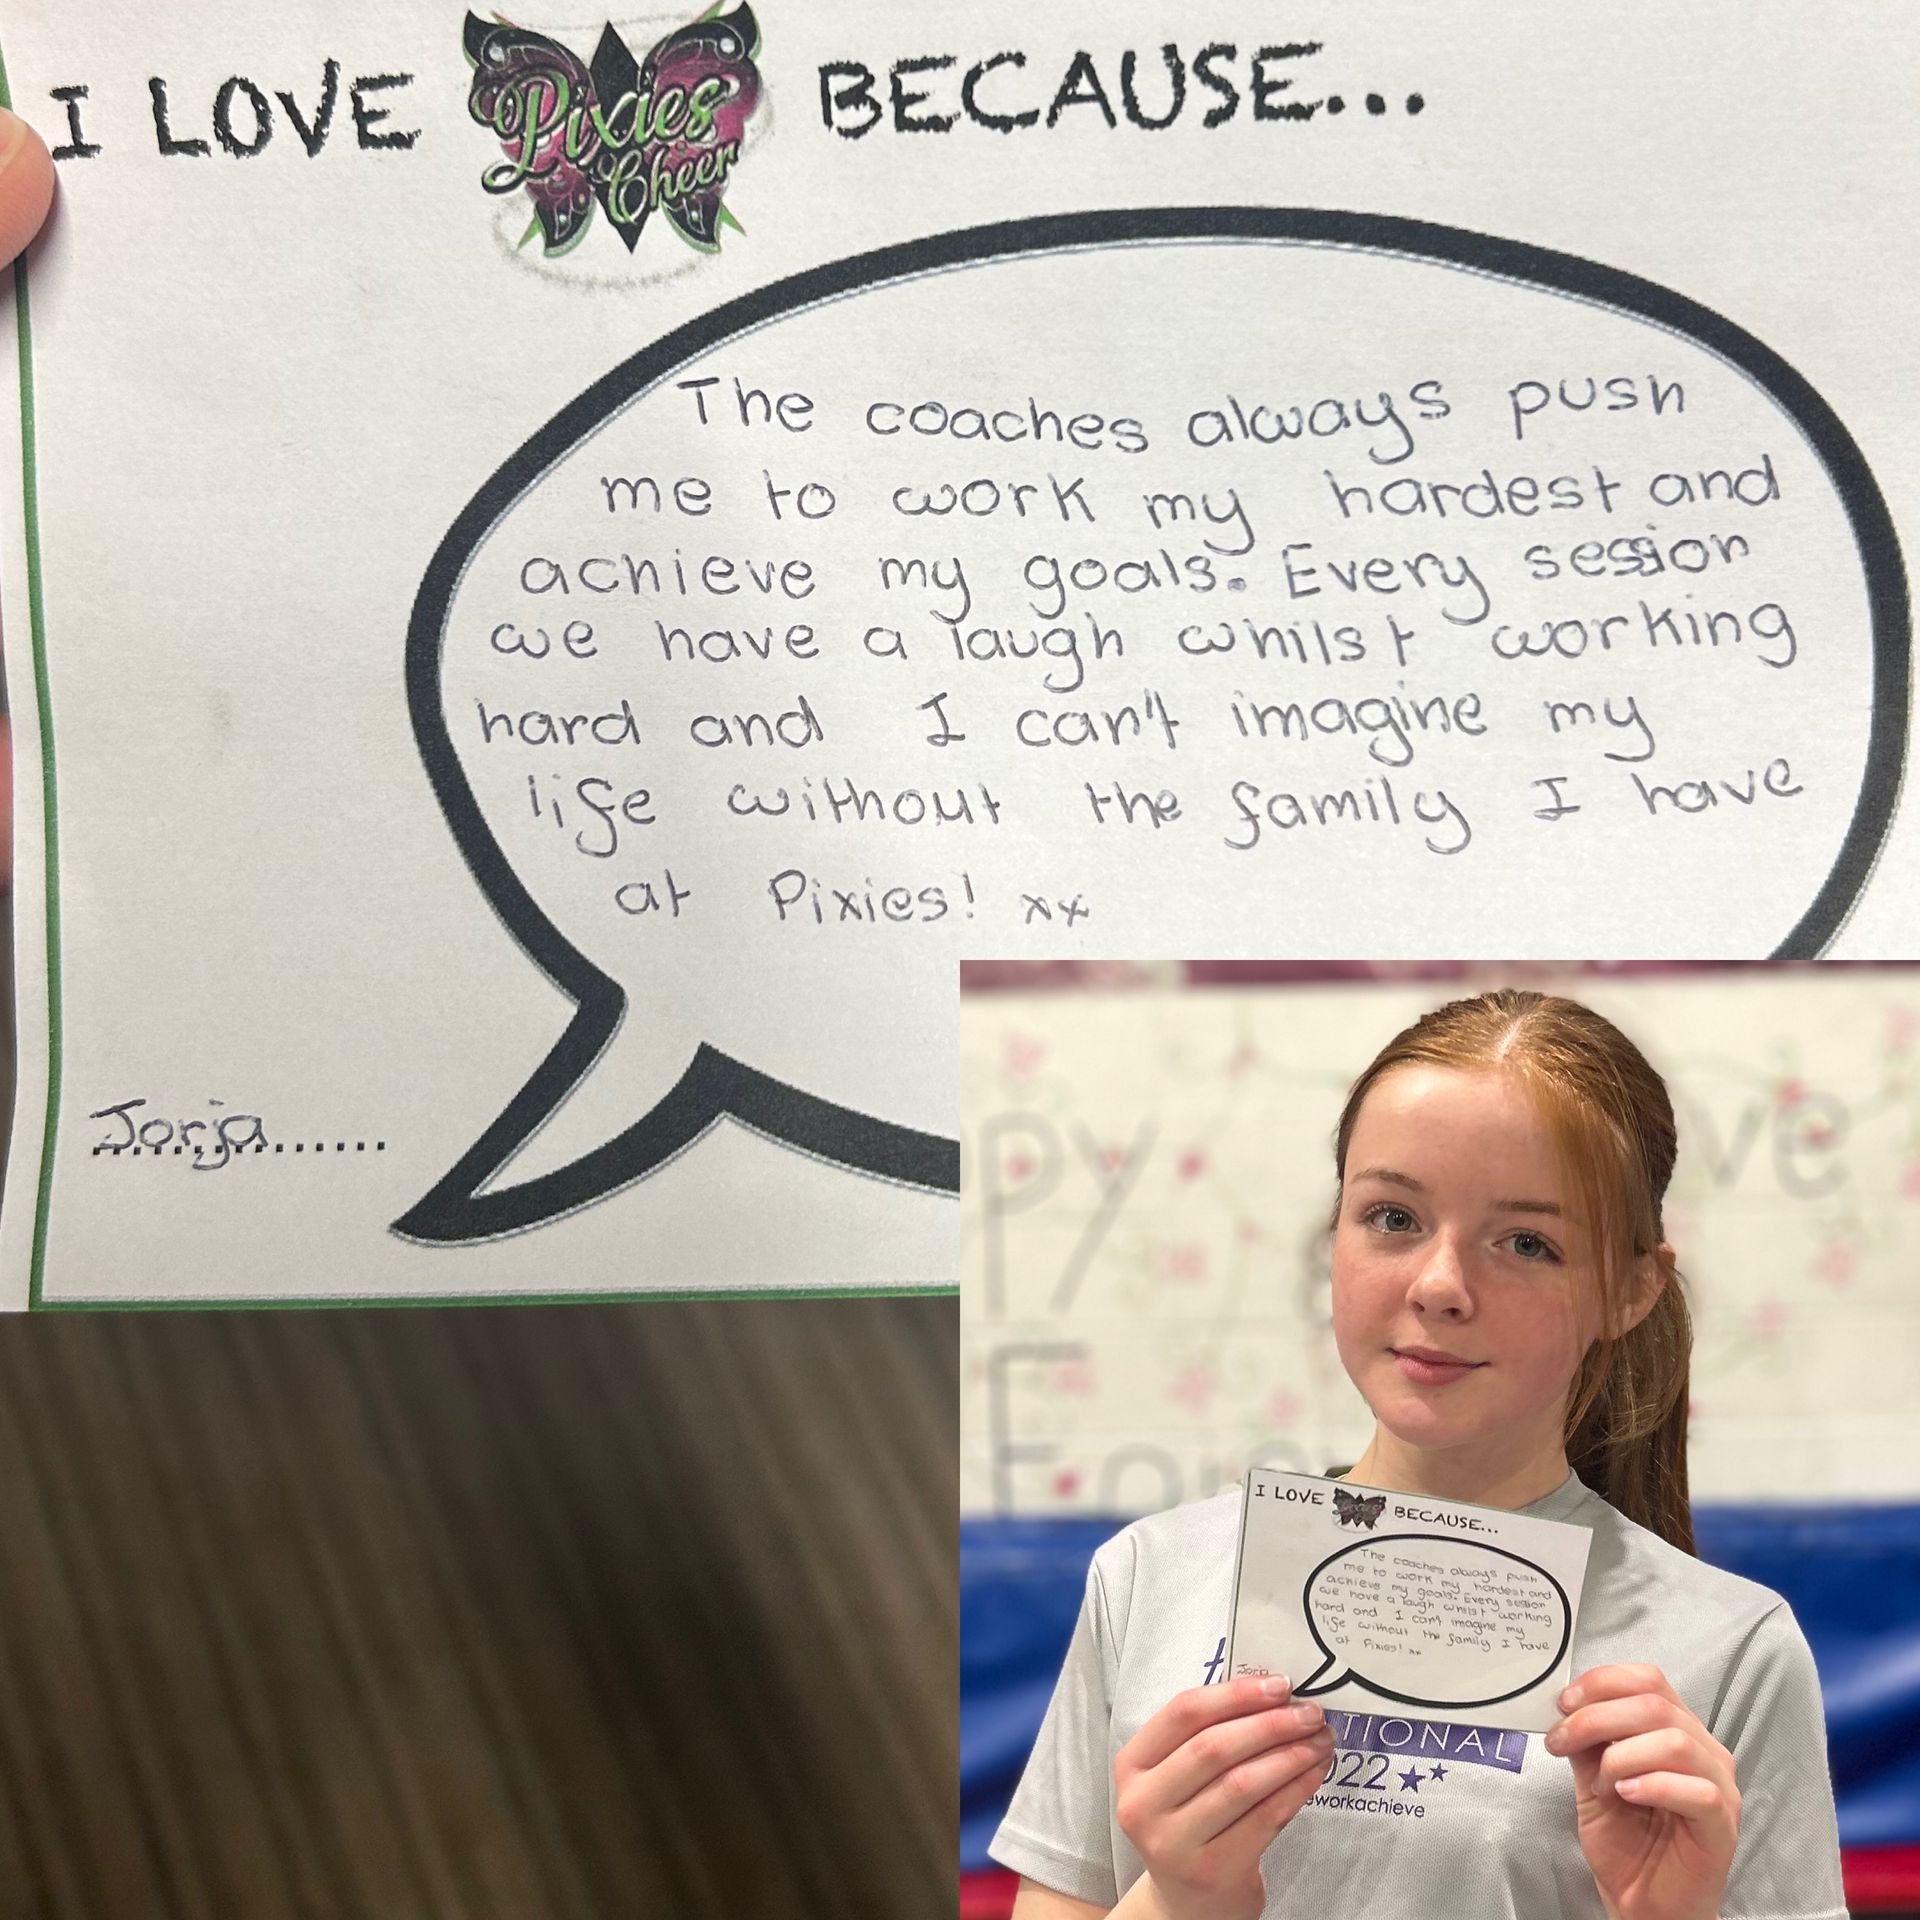 I LOVE Pixies Cheer BECAUSE...
The coaches always push
me to work my hardest and
achieve my goals. Every session
we have a laugh whilst working
hard and I can't imagine my
life without the family I have
at Pixies! xx
Jorja............
I LOVE BECAUSE...
The coaches always push
me to work my hardest and
achieve my goals. Every session
we have a laugh whilst working
hard and I can't imagine my
life without the family I have
at Pixies! xx
Jorja
TIONAL
022
workachieve